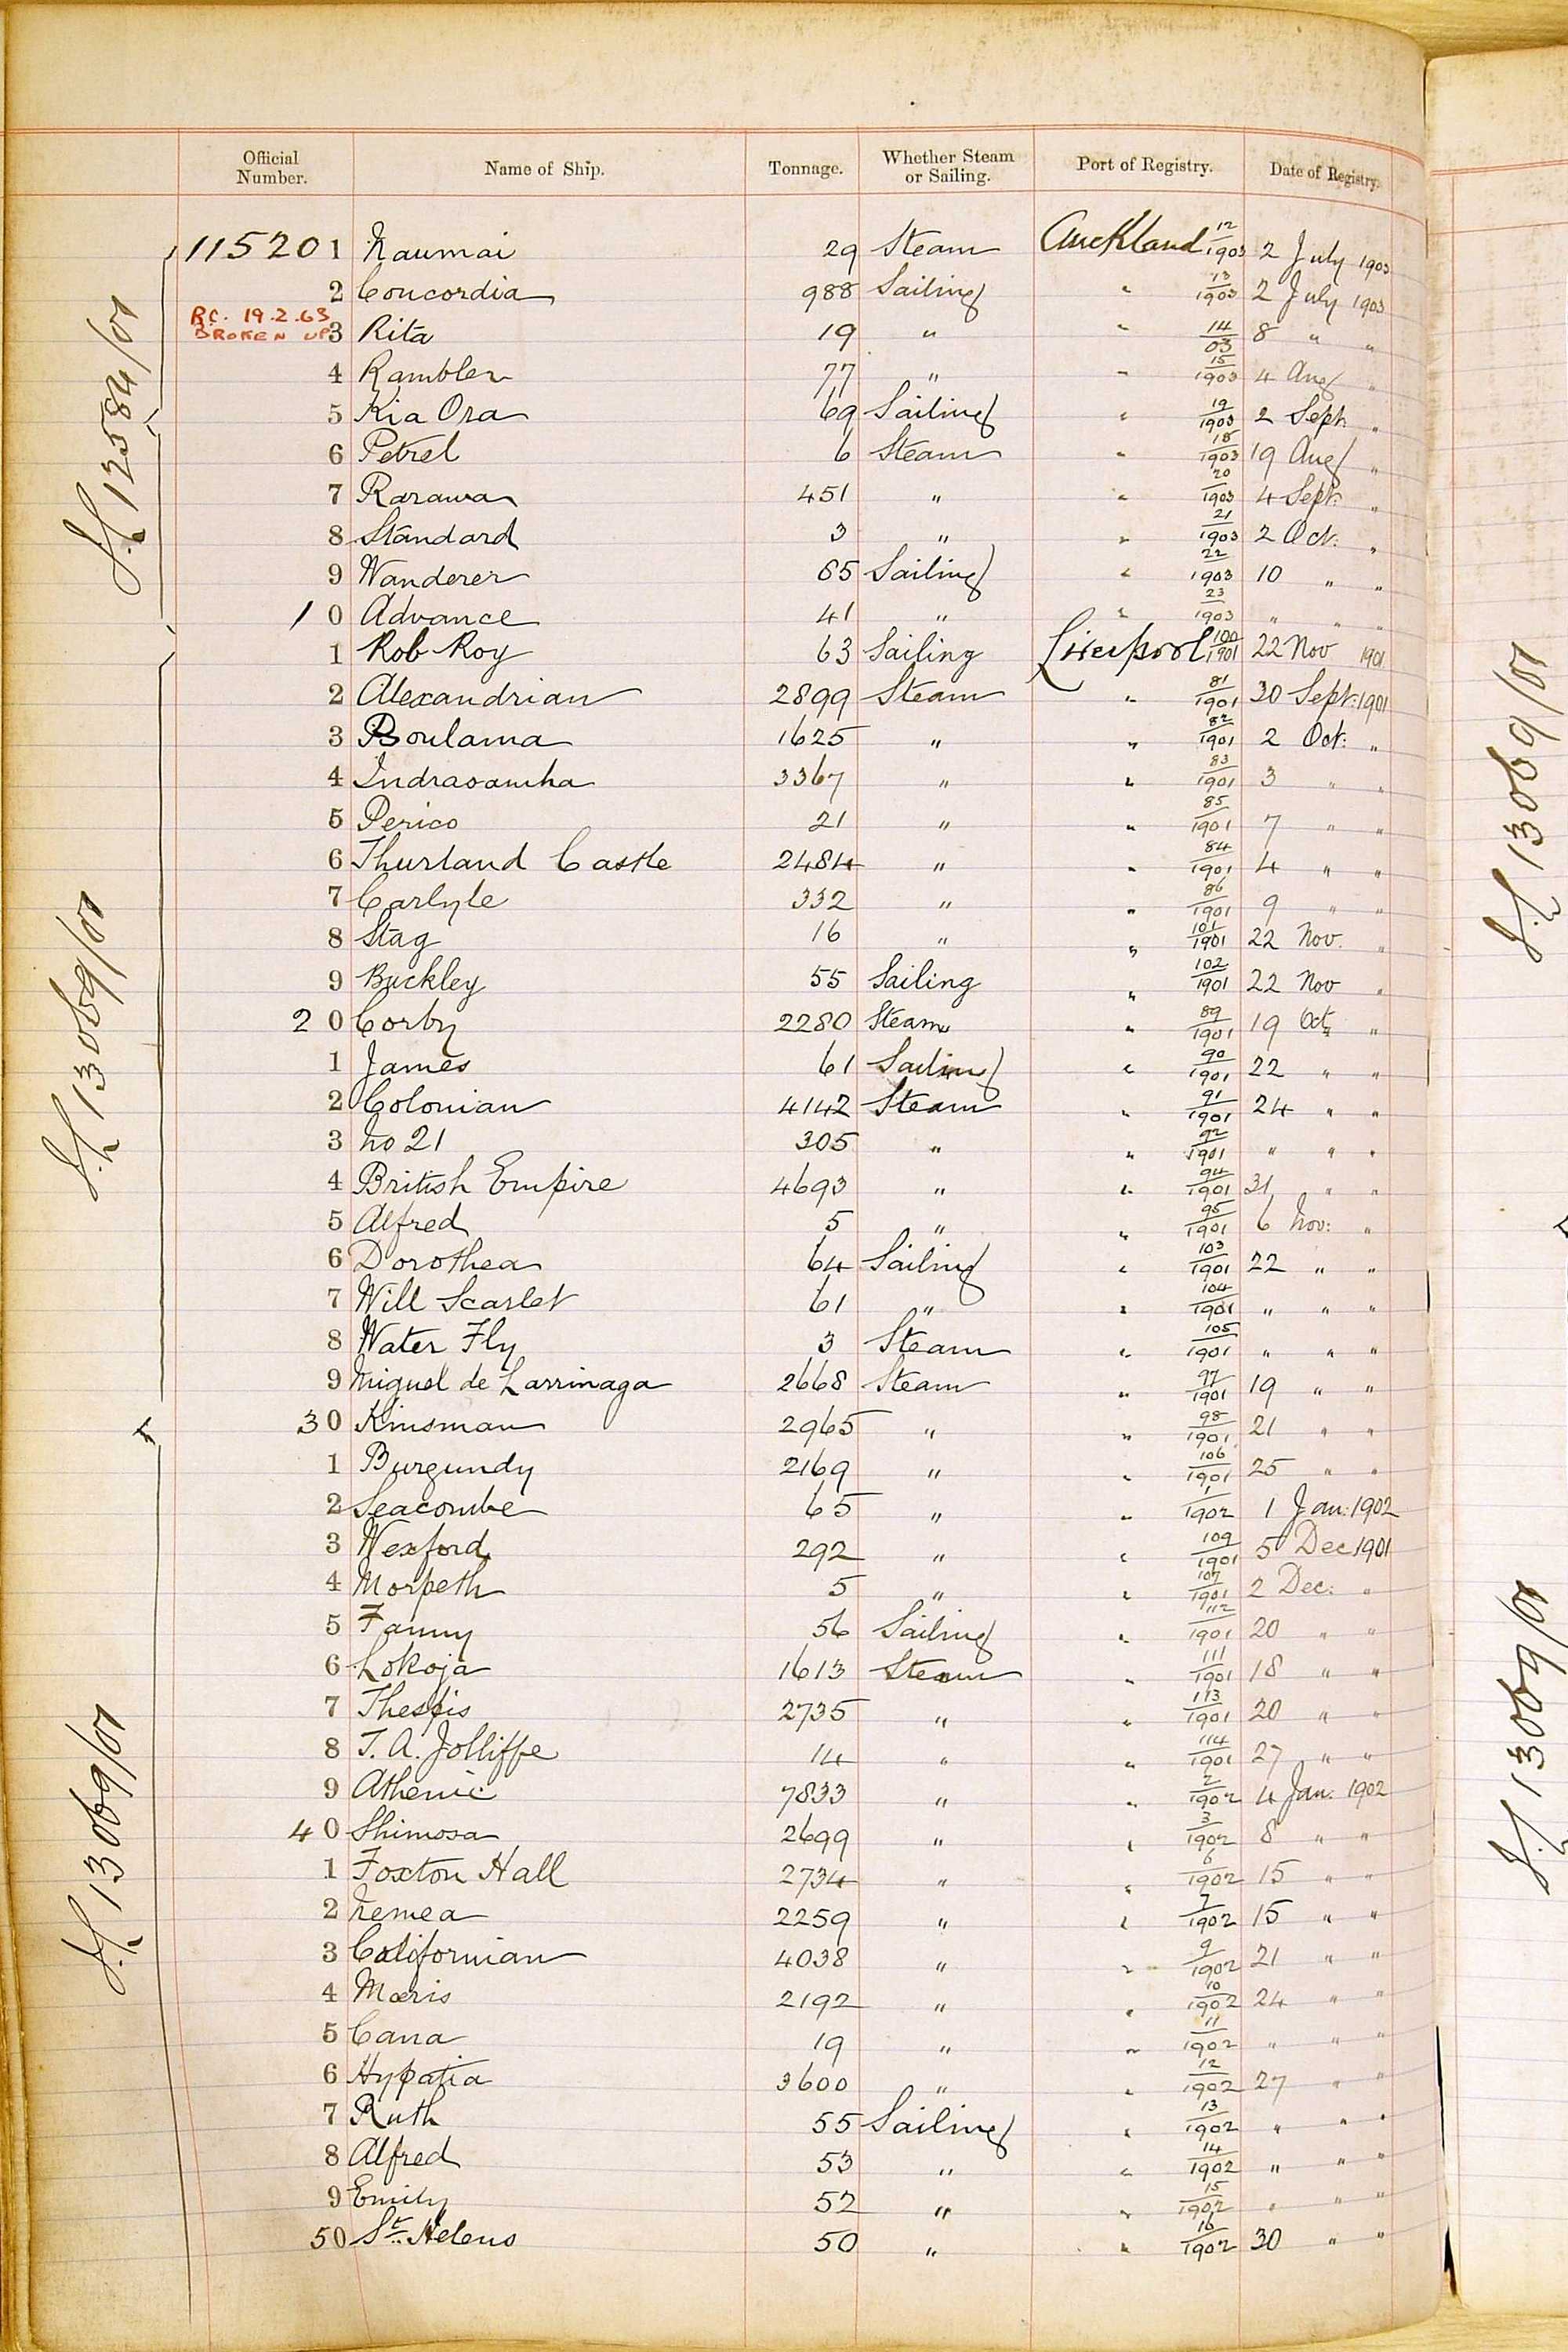 Official Number. Name of Ship. Tonnage. Whether Steam or Sailing. Port of Registry. Date of Registry.
115201 Naumai 29 Steam Auckland 12/1903 2 July 1903
2 Concordia 988 Sailing " 13/1903 2 July 1903
R.C. 19.2.63
BROKEN UP 3 Rita 19 " " 14/03 8 " "
4 Rambler 77 " " 15/1903 4 Aug "
5 Kia Ora 69 Sailing " 19/1903 2 Sept "
6 Petrel 6 Steam " 18/1903 19 Aug "
7 Rarawa 451 " " 20/1903 4 Sept: "
8 Standard 3 " " 21/1903 2 Oct: "
9 Wanderer 65 Sailing " 22/1903 10 " "
10 Advance 41 " " 23/1903 " " "
1 Rob Roy 63 Sailing Liverpool 100/1901 22 Nov 1901
2 Alexandrian 2899 Steam " 81/1901 30 Sept: 1901
3 Boulama 1625 " " 82/1901 2 Oct: "
4 Indrasamha 3367 " " 83/1901 3 " "
5 Perico 21 " " 85/1901 7 " "
6 Thurland Castle 2484 " " 84/1901 4 " "
7 Carlyle 332 " " 86/1901 9 " "
8 Stag 16 " " 101/1901 22 Nov. "
9 Buckley 55 Sailing " 102/1901 22 Nov "
20 Corby 2280 Steam " 89/1901 19 Oct "
1 James 61 Sailing " 90/1901 22 " "
2 Colonian 4142 Steam " 91/1901 24 " "
3 No 21 305 " " 92/1901 " " "
4 British Empire 4693 " " 94/1901 31 " "
5 Alfred 5 " " 95/1901 6 Nov: "
6 Dorothea 64 Sailing " 103/1901 22 " "
7 Will Scarlet 61 " " 104/1901 " " "
8 Water Fly 3 Steam " 105/1901 " " "
9 Miguel de Larrinaga 2668 Steam " 97/1901 19 " "
30 Kinsman 2965 " " 98/1901 21 " "
1 Burgundy 2169 " " 106/1901 25 " "
2 Seacombe 65 " " 1/1902 1 Jan: 1902
3 Wexford 292 " " 109/1901 5 Dec 1901
4 Morpeth 5 " " 107/1901 2 Dec: "
5 Fanny 56 Sailing " 112/1901 20 " "
6 Lokoja 1613 Steam " 111/1901 18 " "
7 Thespis 2735 " " 113/1901 20 " "
8 T. A. Jolliffe 14 " " 114/1901 27 " "
9 Athenic 7833 " " 2/1902 4 Jan: 1902
40 Shimosa 2699 " " 3/1902 8 " "
1 Foxton Hall 2734 " " 6/1902 15 " "
2 Nemea 2259 " " 7/1902 15 " "
3 Californian 4038 " " 9/1902 21 " "
4 Mæris 2192 " " 10/1902 24 " "
5 Cana 19 " " 11/1902 " " "
6 Hypatia 3600 " " 12/1902 27 " "
7 Ruth 55 Sailing " 13/1902 " " "
8 Alfred 53 " " 14/1902 " " "
9 Emily 52 " " 15/1902 " " "
50 St. Helens 50 " " 16/1902 30 " "
12584/01
13069/01
13069/01
13069/01
13069/01